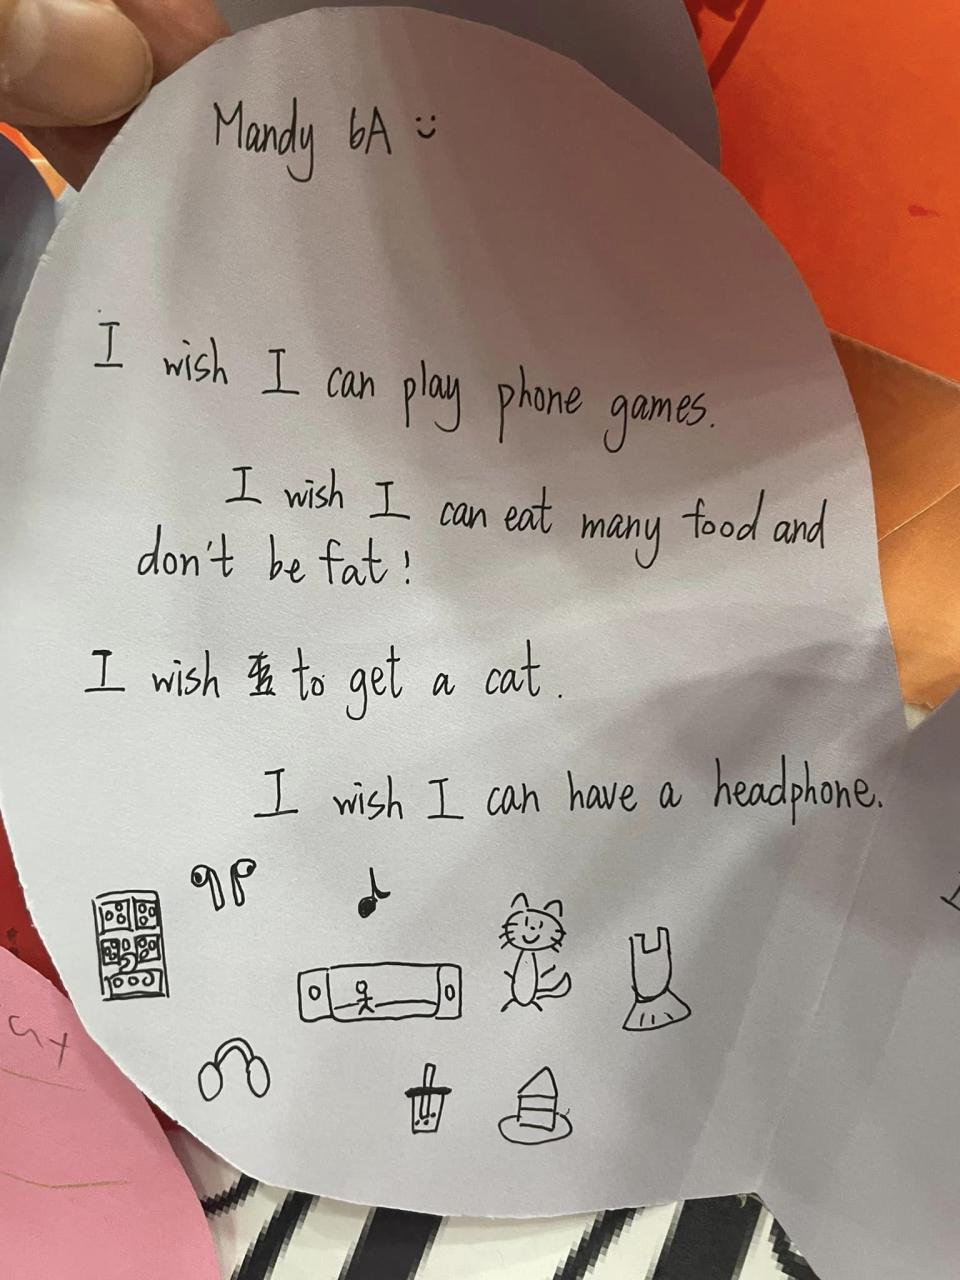 Mandy 6A
I wish I can play phone games.
I wish I can eat many food and
don't be fat!
I wish to get a cat.
I wish I can have a headphone.